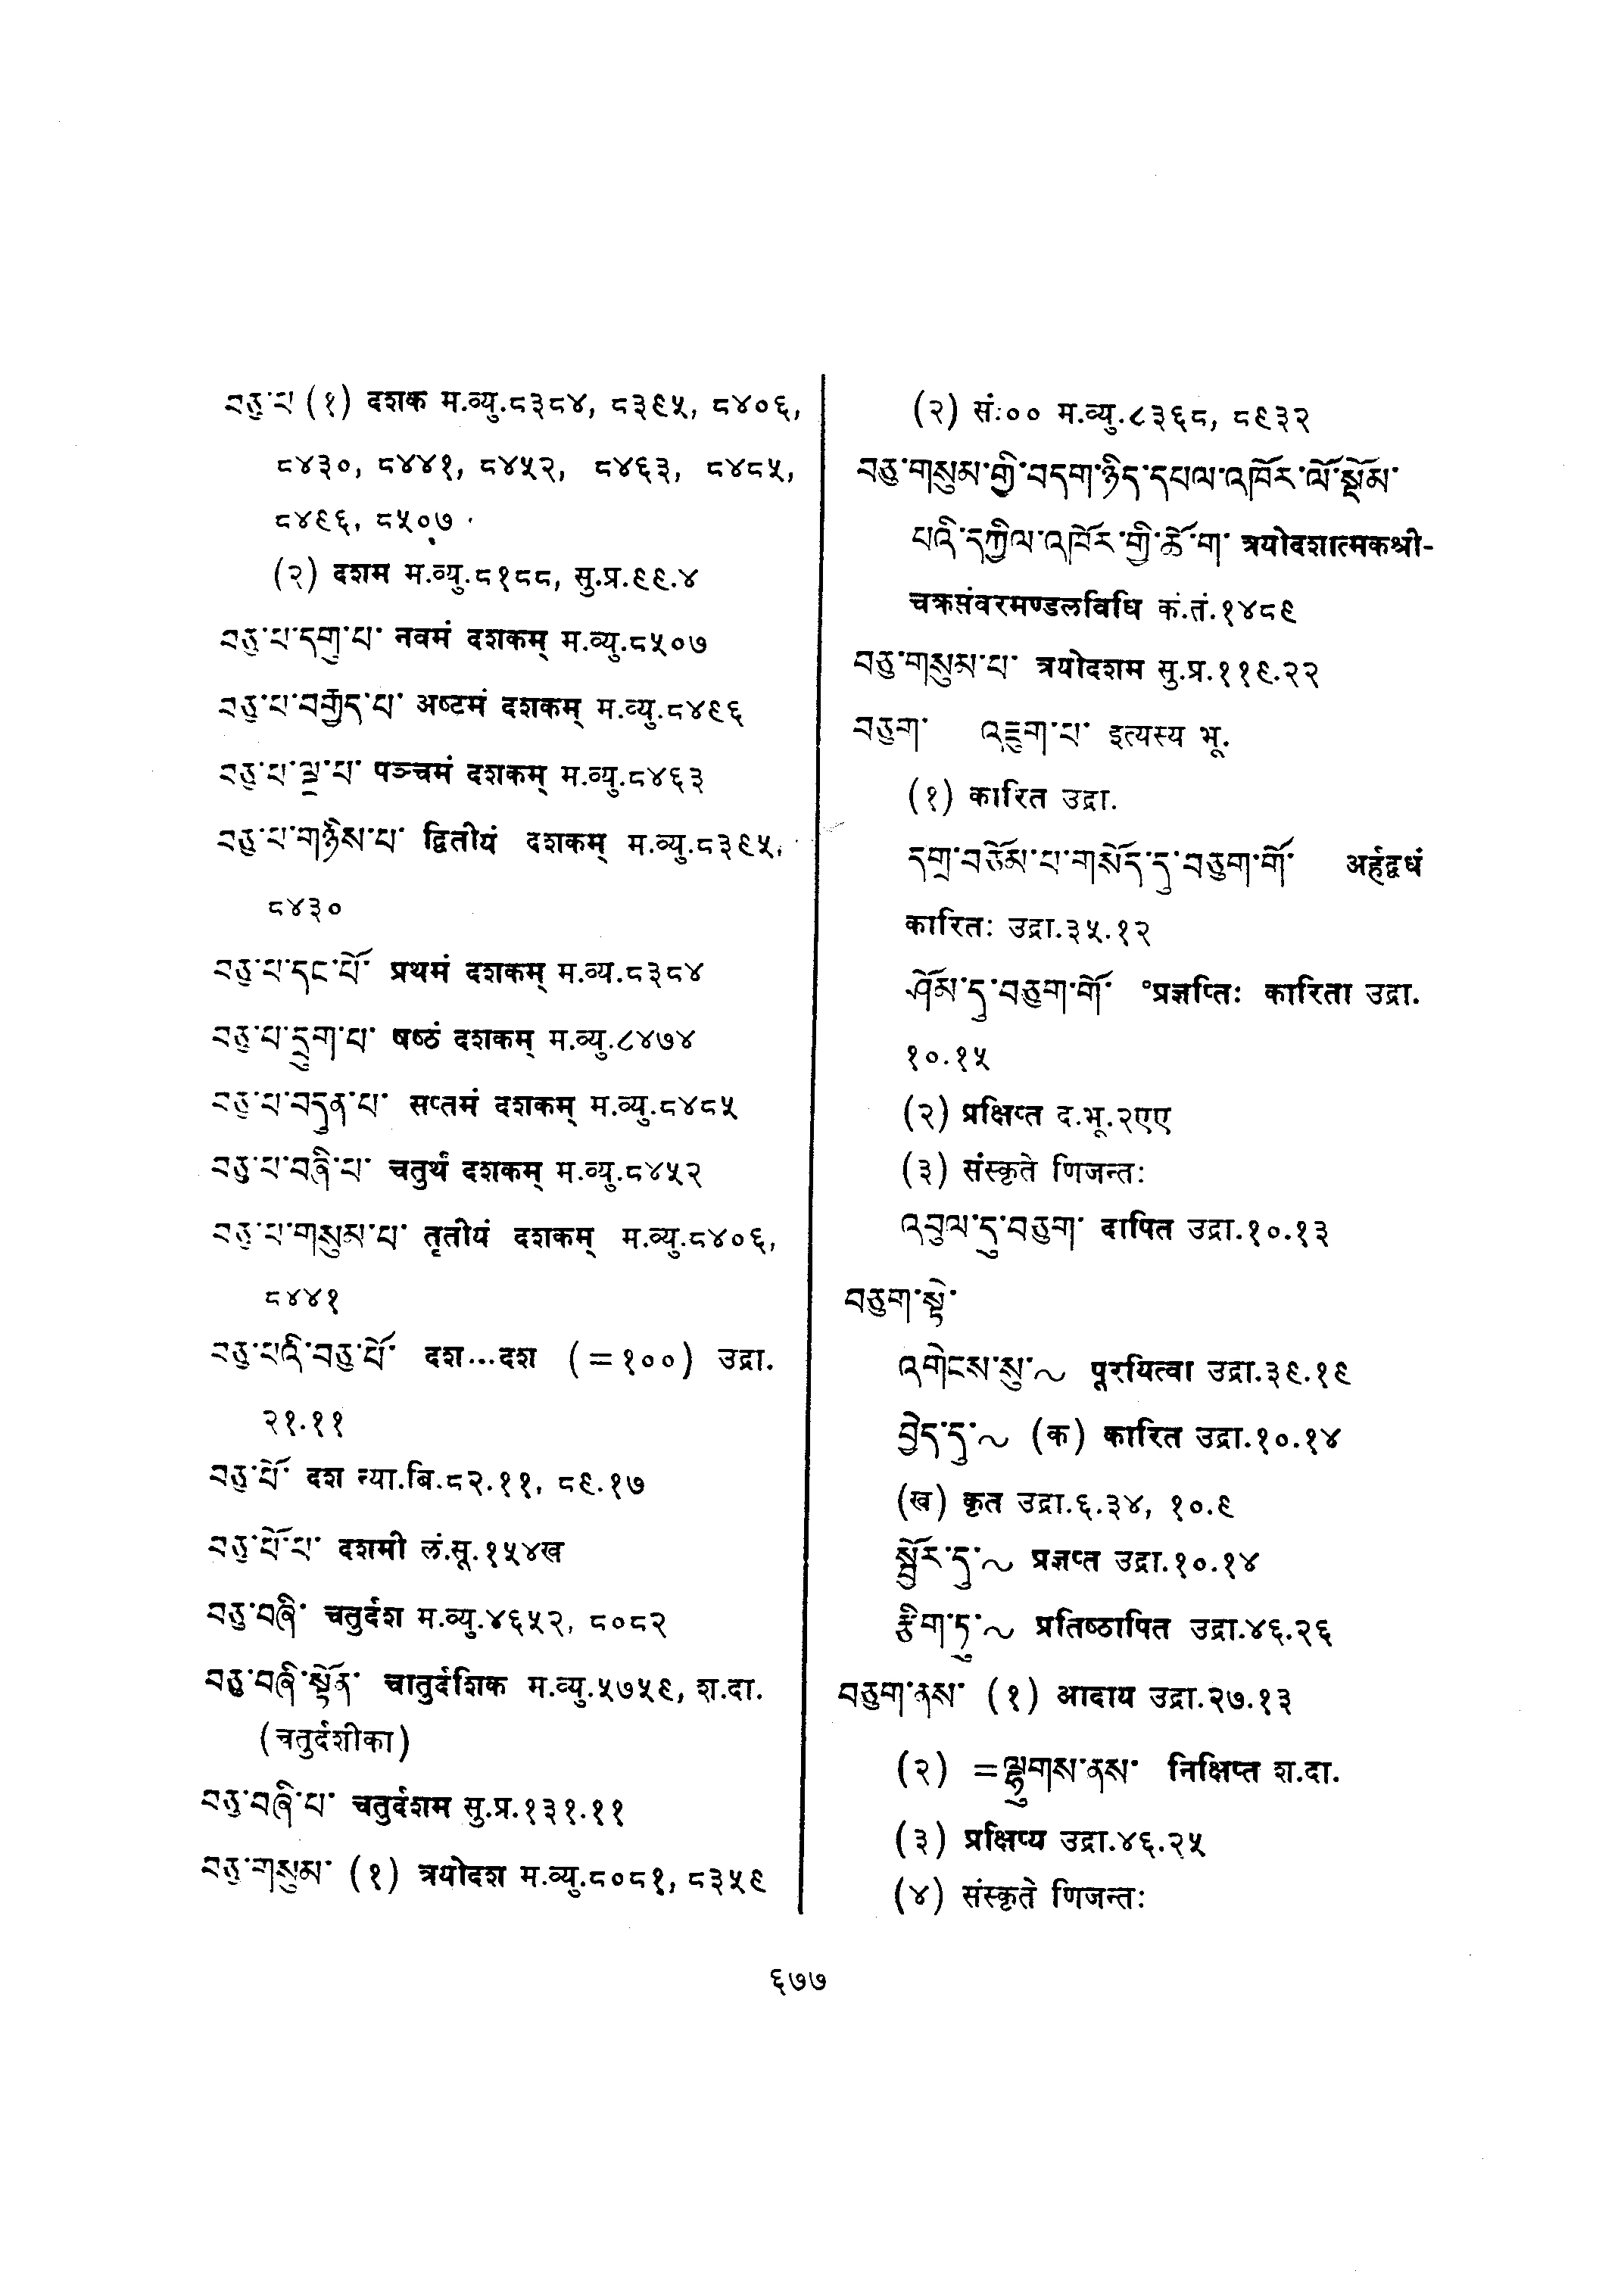 བཅུ་པ (१) दशक म.व्यु.८३८४, ८३९५, ८४०६,
८४३०, ८४४१, ८४५२, ८४६३, ८४८५,
८४९६, ८५०७
(२) दशम म.व्यु.८१८८, सु.प्र.९९.४
བཅུ་པ་དགུ་པ་ नवमं दशकम् म.व्यु.८५०७
བཅུ་པ་བརྒྱད་པ་ अष्टमं दशकम् म.व्यु.८४९६
བཅུ་པ་ལྔ་པ་ पञ्चमं दशकम् म.व्यु.८४६३
བཅུ་པ་གཉིས་པ་ द्वितीयं दशकम् म.व्यु.८३९५,
८४३०
བཅུ་པ་དང་པོ་ प्रथमं दशकम् म.व्य.८३८४
བཅུ་པ་དྲུག་པ་ षष्ठं दशकम् म.व्यु.८४७४
བཅུ་པ་བདུན་པ་ सप्तमं दशकम् म.व्यु.८४८५
བཅུ་པ་བཞི་པ་ चतुर्थं दशकम् म.व्यु.८४५२
བཅུ་པ་གསུམ་པ་ तृतीयं दशकम् म.व्यु.८४०६,
८४४१
བཅུ་པའི་བཅུ་པོ་ दश...दश (=१००) उद्रा.
२१.११
བཅུ་པོ་ दश न्या.बि.८२.११, ८९.१७
བཅུ་པོ་པ་ दशमी लं.सू.१५४ख
བཅུ་བཞི་ चतुर्दश म.व्यु.४६५२, ८०८२
བཅུ་བཞི་སྟོན་ चातुर्दशिक म.व्यु.५७५९, श.दा.
(चतुर्दशीका)
བཅུ་བཞི་པ་ चतुर्दशम सु.प्र.१३१.११
བཅུ་གསུམ་ (१) त्रयोदश म.व्यु.८०८१, ८३५९
(२) सं:०० म.व्यु.८३६८, ८९३२
བཅུ་གསུམ་གྱི་བདག་ཉིད་དཔལ་འཁོར་ལོ་སྡོམ་
པའི་དཀྱིལ་འཁོར་གྱི་ཆོ་ག་ त्रयोदशात्मकश्री-
चक्रसंवरमण्डलविधि कं.तं.१४८९
བཅུ་གསུམ་པ་ त्रयोदशम सु.प्र.११९.२२
བཅུག་ འཇུག་པ་ इत्यस्य भू.
(१) कारित उद्रा.
དགྲ་བཅོམ་པ་གསོད་དུ་བཅུག་གོ་ अर्हद्वधं
कारितः उद्रा.३५.१२
ཤོམ་དུ་བཅུག་གོ་ °प्रज्ञप्तिः कारिता उद्रा.
१०.१५
(२) प्रक्षिप्त द.भू.२एए
(३) संस्कृते णिजन्तः
འབུལ་དུ་བཅུག་ दापित उद्रा.१०.१३
བཅུག་སྟེ་
འགེངས་སུ་~ पूरयित्वा उद्रा.३९.१९
བྱེད་དུ་~ (क) कारित उद्रा.१०.१४
(ख) कृत उद्रा.६.३४, १०.९
སྦྱོར་དུ་~ प्रज्ञप्त उद्रा.१०.१४
རྩིག་ཏུ་~ प्रतिष्ठापित उद्रा.४६.२६
བཅུག་ནས་ (१) आदाय उद्रा.२७.१३
(२) =ལྷུགས་ནས་ निक्षिप्त श.दा.
(३) प्रक्षिप्य उद्रा.४६.२५
(४) संस्कृते णिजन्तः
६७७